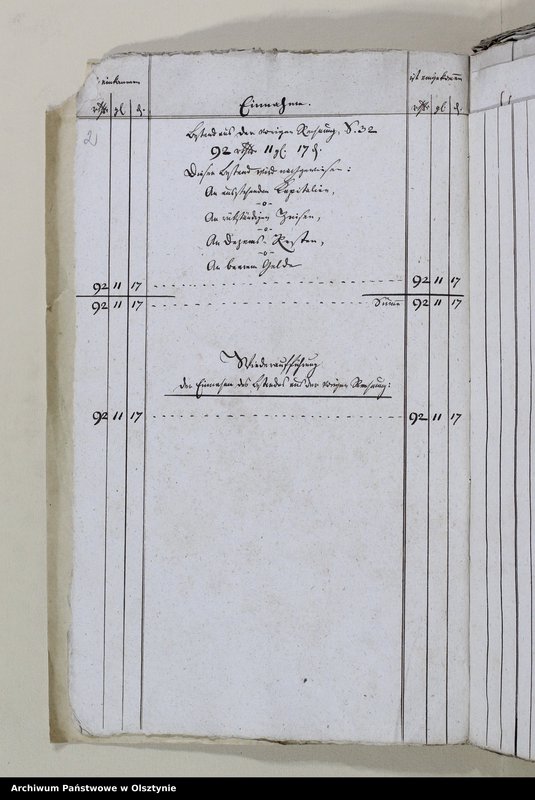 einkommen
ist eingekommen
rthlr gl. d.
Einnahme.
rthlr gl. d.
2
Bestand aus der vorigen Rechnung, S. 32
92 rthlr 11 gl. 17 d.
Dieser Bestand wird nachgewiesen:
An ausstehenden Kapitalien,
-o-
An rückständigen Zinsen,
-o-
An Dezems-Resten,
-o-
An baarem Gelde
92 11 17 92 11 17
92 11 17 Summe 92 11 17
Wiederaufführung
der Einnahme des Bestandes aus der vorigen Rechnung:
92 11 17 92 11 17
Archiwum Państwowe w Olsztynie